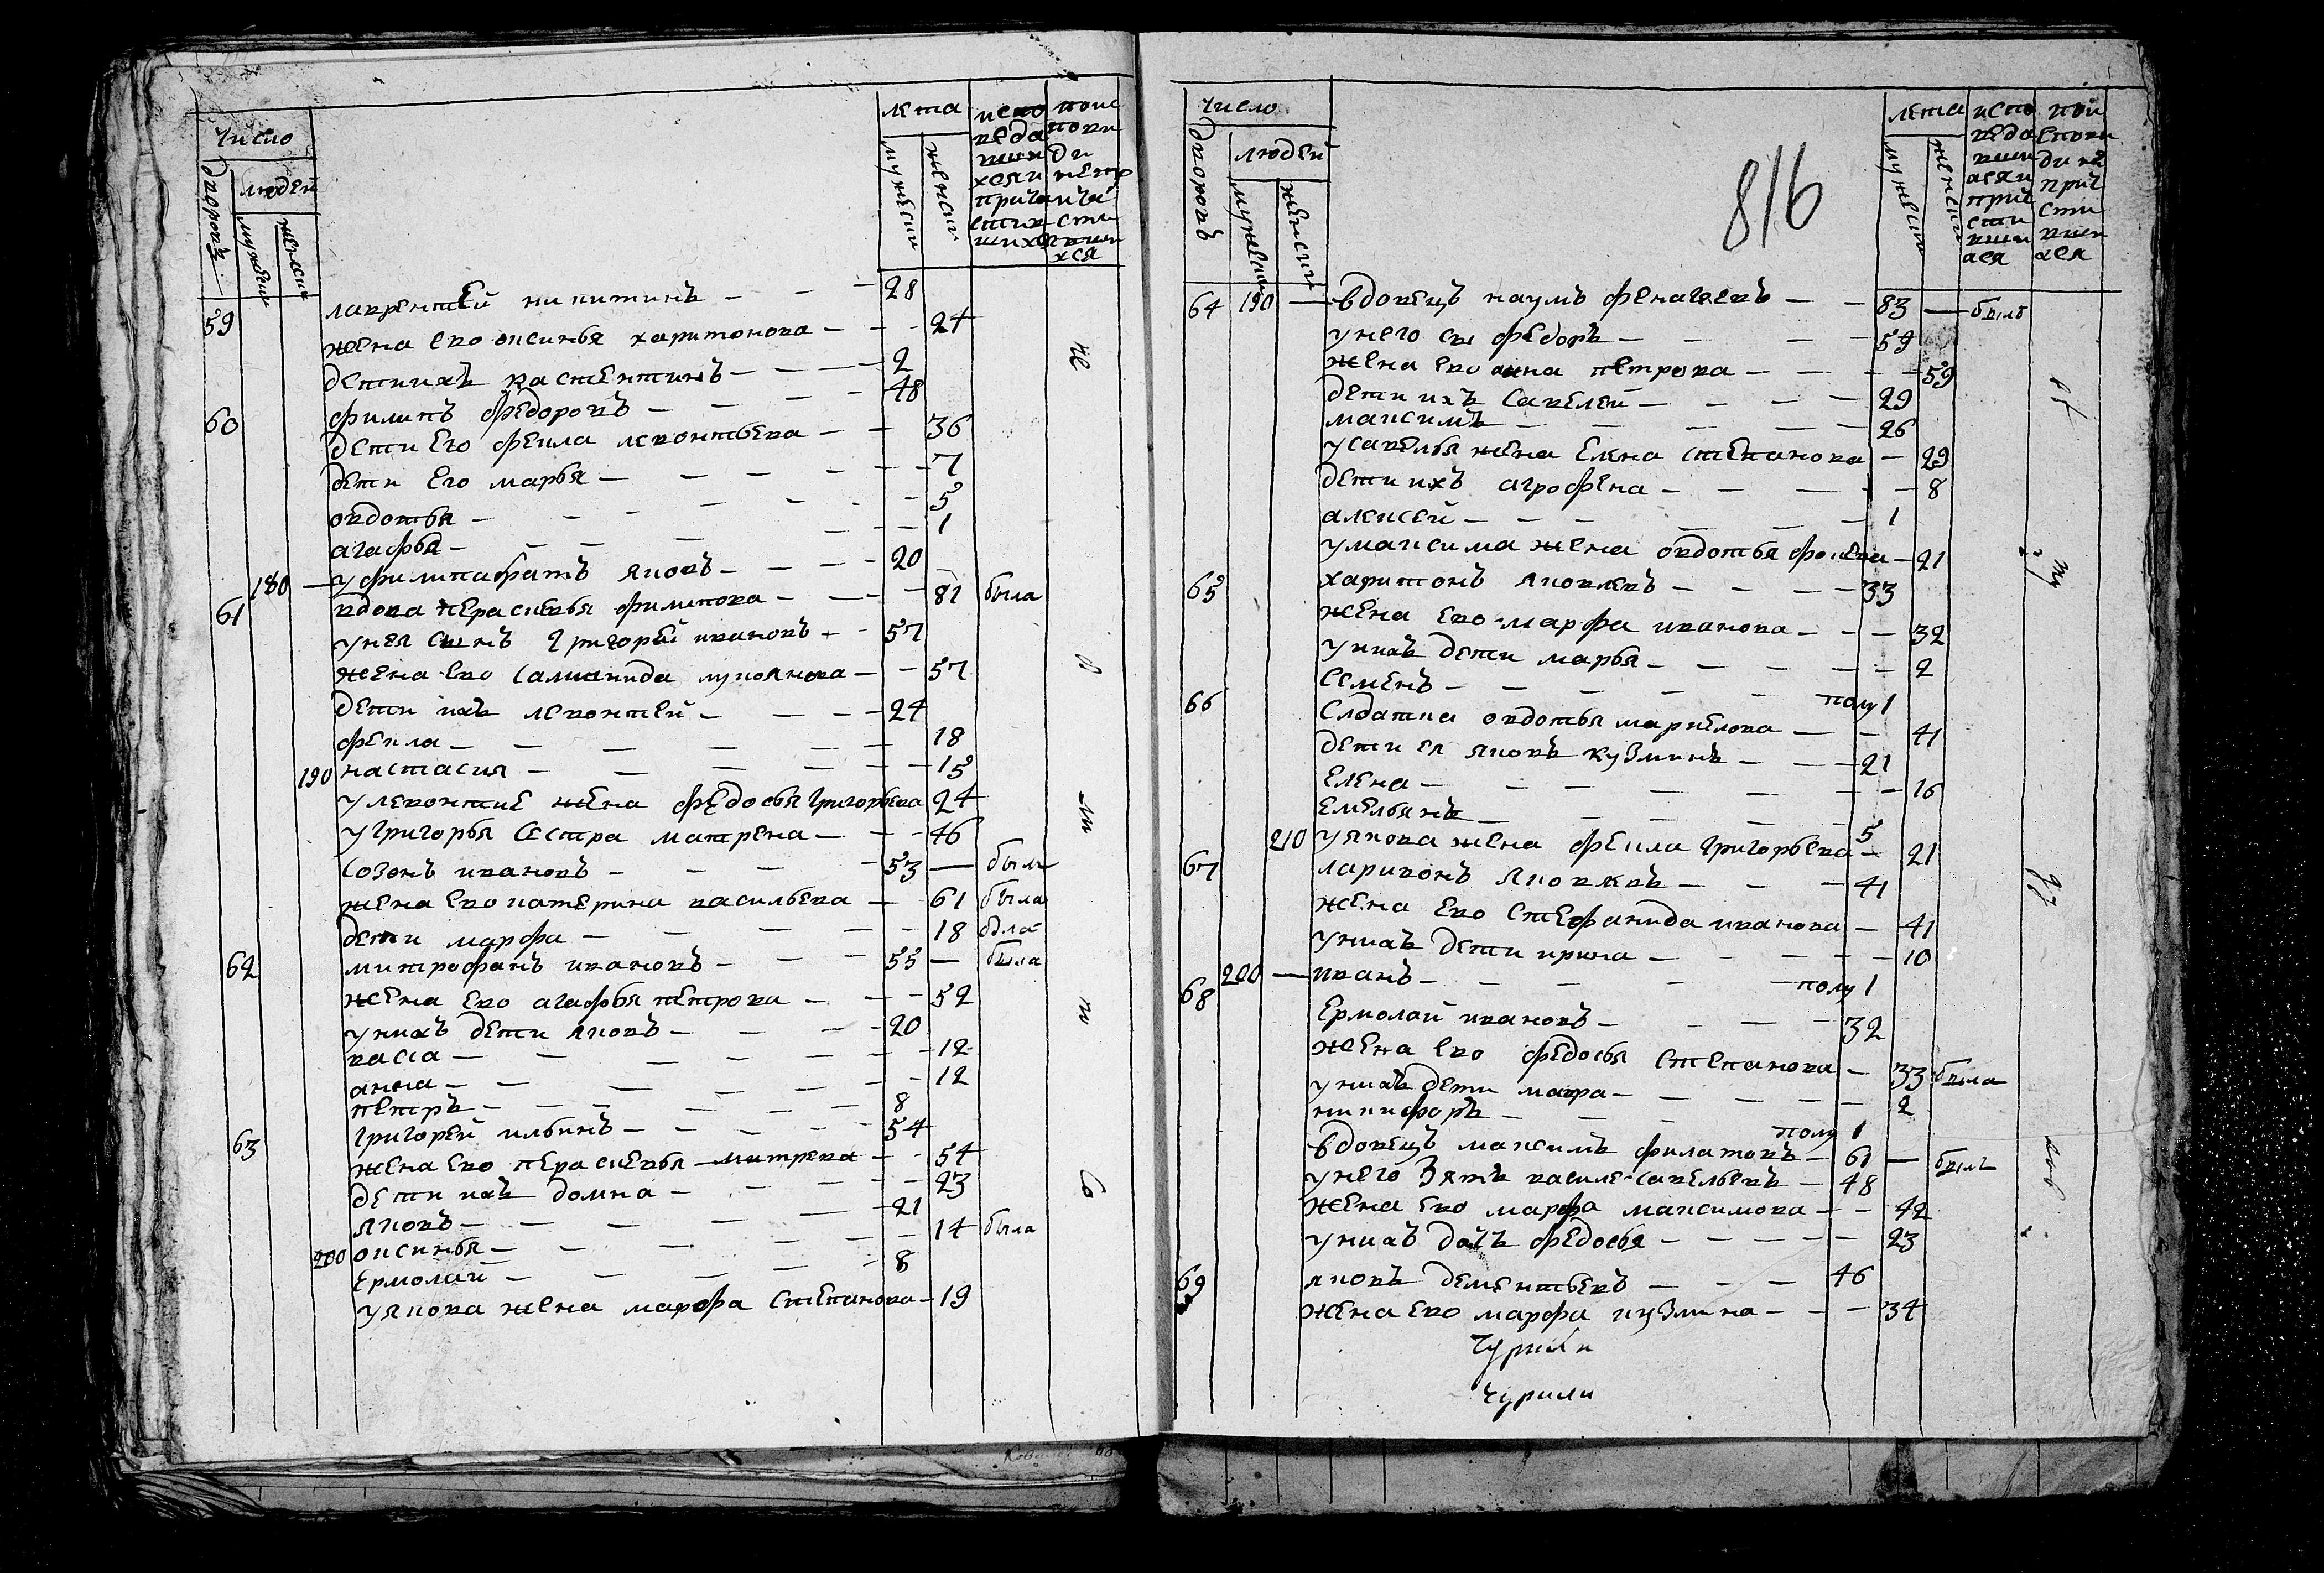 число
дворовъ
людей
мужеска
женска
лета
мужеска
женска
испо
веда
вши
хся и
прича
сти
шихся
испо
веди
не пр
ича
сти
вши
хся
59 лаврентей никитинъ — — 28
жена ево оксинья харитонова — — — 24
дети ихъ кастентинъ — — — 2
60 филипъ федоровъ — — — 48
дети его фекла левонтьева — — 36
дети его марья — — — — 7
овдотья — — — — — 5
агафья — — — — — 1
180 — у филипа братъ яковъ — — — 20
61 вдова перасковья филипова — — — 81 была
у нея сынъ григорей ивановъ — — 57
жена ево саламанида лукоянова — — 57
дети ихъ левонтей — — — 24
фекла — — — — — 18
190 настасия — — — — — 15
у левонтие жена федосья григорьева 24
у григорья сестра матрена — — — 46
созонъ ивановъ — — — 53 — былъ
жена ево катерина васильева — 61 была
дети марфа — — — — 18 была
62 митрофанъ ивановъ — — — 55 — была
жена ево агафья петрова — — — 52
у нихъ дети яковъ — — — 20
васса — — — — — 12
анна — — — — — 12
петръ — — — — — 8
63 григорей ильинъ — — — — 54
жена ево перасковья митрева — — 54
дети ихъ домна — — — — 23
яковъ — — — — — 21
200 оксинья — — — — — 14 была
ермолай — — — — 8
у якова жена марфа степанова — 19
не
в
ли
то
со
816
число
дворовъ
людей
мужеска
женска
лета
мужеска
женска
испо
веда
вши
ася и
прич
сти
вши
ася
пои
спови
ди не
прич
сти
вши
ася
64 190 — вдовецъ наумъ — — 83 — былъ
у него сы федоръ — — — — 59
жена ево анна петрова — — — — 59
дети ихъ савелей — — — — 29
максимъ — — — — 26
у савелья жена елена степанова — 29
дети ихъ агрофена — — — — 8
алексей — — — — 1
у максима жена овдотья — 21
65 харитонъ яковлевъ — — — — 33
жена ево марфа иванова — — — 32
у нихъ дети марья — — — — 2
семенъ — — — — — полу 1
66 слдатка овдотья маркелова — — 41
дети ея яковъ кузминъ — — — 21
елена — — — — — — 16
емельянъ — — — — — 5
210 у якова жена фекла григорьева — 21
67 ларивонъ яковлевъ — — — 41
жена ево стефанида иванова — 41
у нихъ дети ирина — — — — — 10
200 — иванъ — — — — — полу 1
68 ермолай ивановъ — — — — 32
жена ево федосья степанова — 33 была
у нихъ дети мавра — — — — — 2
никифоръ — — — — полу 1
вдовецъ максимъ филатовъ — 61 — былъ
у него зять василе савельевъ — 48
жена ево марфа максимова — — 42
у нихъ дочь федосья — — — — — 23
69 яковъ дементьевъ — — — 46
жена ево марфа кузмина — — — 34
чурили
чурили